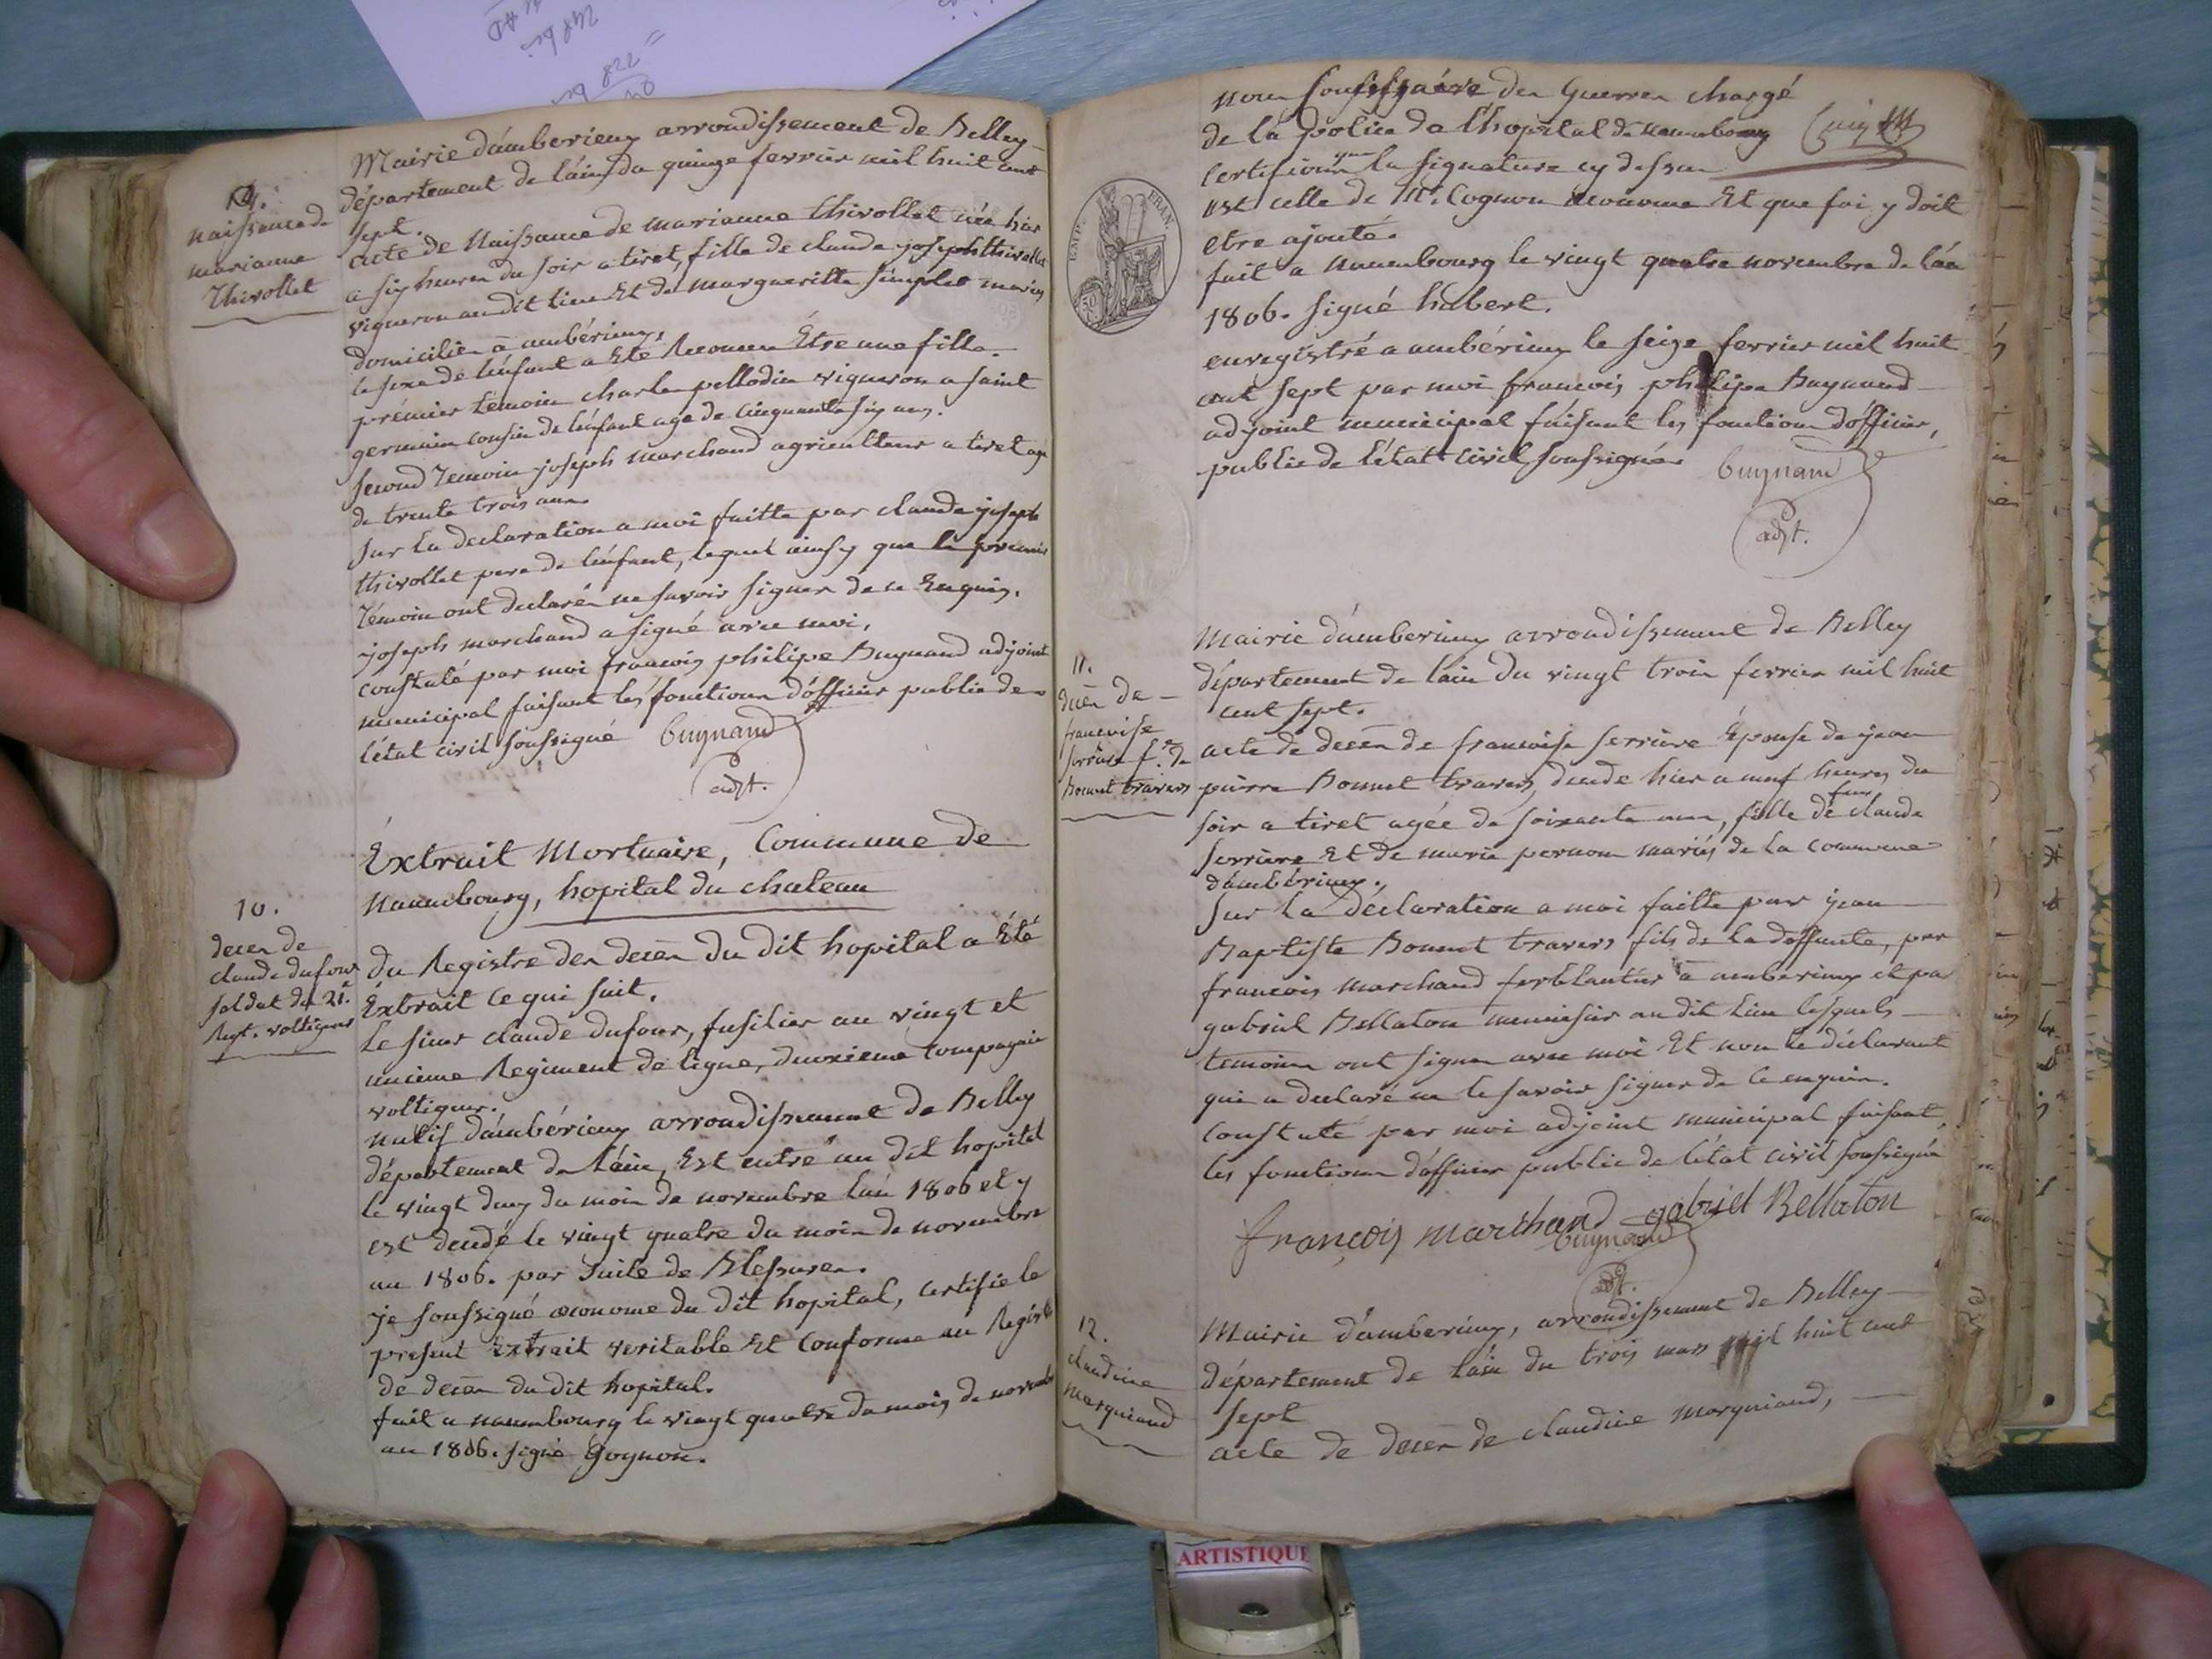 Mairie d'amberieux arrondissement de Belley
département de l'ain du quinze fevrier mil huit cent
sept.
naissance de
marianne
Thivollet
acte de Naissance de marianne thivollet née hier
a six heures du soir a tiret, fille de claude joseph thivollet
vigneron au dit lieu Et de margueritte simplet mariés
domiciliés à ambérieux,
le sexe de l'enfant a Eté Reconnu Être une fille.
prémier témoin charles pellodin vigneron a saint
germain cousin de l'enfant age de cinquante six ans.
second temoin joseph marchand agriculteur a tiret agé
de trente trois ans.
sur la declaration a moi faitte par claude joseph
thivollet pere de l'enfant, lequel ainsy que le premier
témoin ont declarés ne savoir signer de ce Enquis.
joseph marchand a signé avec moi,
constaté par moi francois philipe Buynand adjoint
municipal faisant les fonctions d'officier public de
l'état civil soussigné Buynand
adjt.
Extrait Mortuaire, Commune de
naumbourg, hopital du chateau
10.
deces de
claude dufour
soldat du 21e
Regt. voltigeur
du Registre des deces du dit hopital a Eté
Éxtrait ce qui suit.
Le sieur claude dufour, fusilier au vingt et
unieme Regiment de ligne, deuxieme compagnie
voltigeur.
natif d'ambérieux arrondissement de Belley
département de l'ain, Est entré au dit hopital
le vingt deux du mois de novembre l'an 1806 et y
est decedé le vingt quatre du mois de novembre
an 1806. par suite de Blessures.
je soussigné œconome du dit hopital, certifie le
present Extrait veritable Et Conforme au Registre
de deces du dit hopital.
fait a naumbourg le vingt quatre du mois de novembre
an 1806. signé Gognon.
nous Commissaire des Guerres chargé
de la police de l'hopital de naumbourg
certifions que la signature cy dessus
est celle de Mr. Cognon œconome Et que foi y doit
etre ajouté.
EMP. FRAN.
fait a naumbourg le vingt quatre novembre de l'an
1806. signé hubert.
enregistré a ambérieux le seize fevrier mil huit
cent sept par moi francois philipe Buynand
adjoint municipal faisant les fonctions d'officier,
public de l'état civil soussigné. Buynand
adjt.
Mairie d'amberieux arrondissement de Belley
département de l'ain du vingt trois fevrier mil huit
cent sept.
11.
deces de
francoise
serriere f.e de
bonnet travers
acte de deces de francoise serriere Épouse de jean
pierre Bonnet travers, decedé hier a neuf heures du
soir a tiret agée de soixante ans, fille de feu claude
serriere Et de marie pernom mariés de la commune
d'ambérieux.
sur la déclaration a moi faitte par jean
Baptiste Bonnet travers fils de la deffunte, par
francois marchand ferblantier à amberieux et par
gabriel Bellaton menuisier au dit lieu lesquels
temoins ont signés avec moi Et non le déclarant
qui a declaré ne le savoir signer de ce enquis.
constaté par moi adjoint municipal faisant
les fonctions d'officier public de l'état civil soussigné
françois marchand gabriel Bellaton
Buynand
adjt.
12.
claudine
Morgniand
Mairie d'amberieux, arrondissement de Belley
département de l'ain du trois mars mil huit cent
sept
acte de deces de claudine morgniand,
ARTISTIQUE